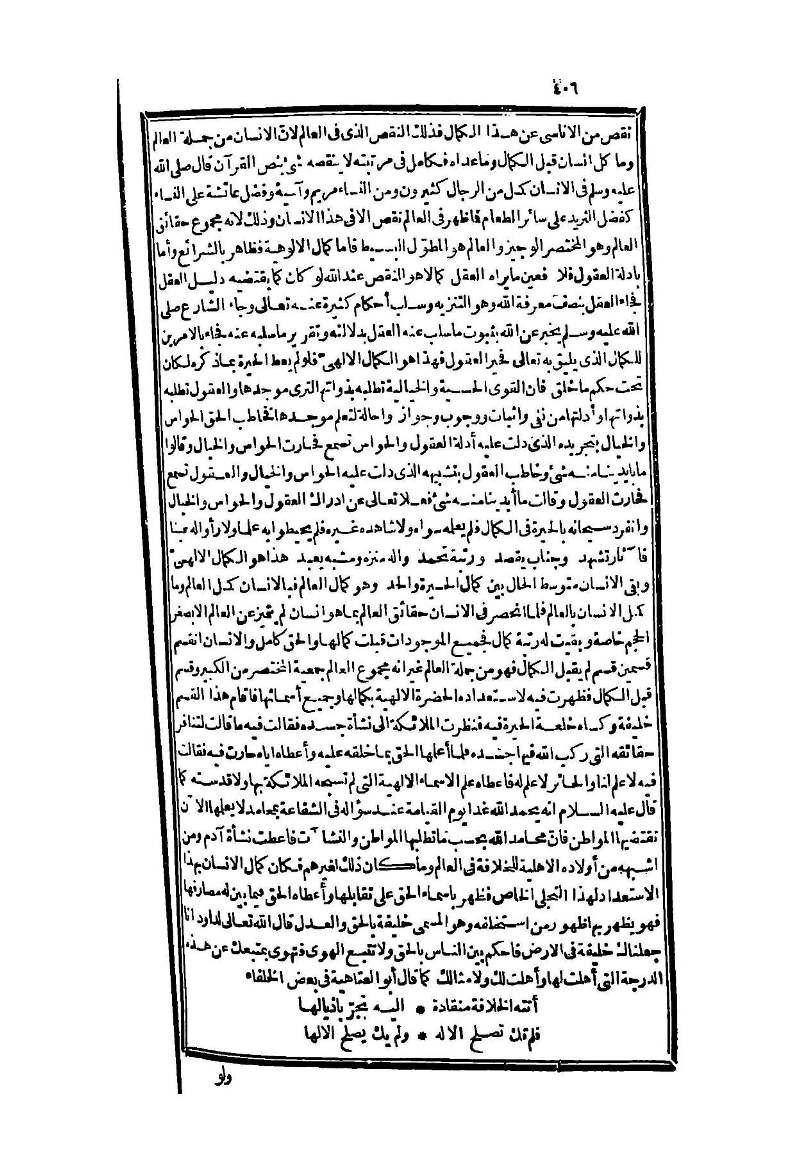 ٤٠٦
نقص من الاناسى عن هذا الكمال فذلك النقص الذى فى العالم لان الانسان من جملة العالم
وما كل انسان قبل الكمال وما عداه فكامل فى مرتبته لا ينقصه شئ بنص القرآن قال صلى الله
عليه وسلم فى الانسان كمل من الرجال كثيرون ومن النساء مريم وآسية وفضل عائشة على النساء
كفضل الثريد على سائر الطعام فاظهر فى العالم نقص الا فى هذا الانسان وذلك لانه مجموع حقائق
العالم وهو المختصر الوجيز والعالم هو المطول البسيط فاما كمال الالوهية فظاهر بالشرائع وأما
بادلة العقول فلا فعين ما يراه العقل كمالا هو النقص عند الله لو كان كما يقتضيه دليل العقل
فجاء العقل بنصف معرفة الله وهو التنزيه وسلب أحكام كثيرة عنه تعالى وجاء الشارع صلى
الله عليه وسلم يخبر عن الله بثبوت ما سلب عنه العقل بدلالته وتقرير ما سلبه عنه فجاء بالامرين
للكمال الذى يليق به تعالى فحير العقول فهذا هو الكمال الالهى فلو لم يعط الحيرة بما ذكره لكان
تحت حكم ما خلق فان القوى الحسية والخيالية تطلبه بذواتها لترى موجدها والعقول تطلبه
بذواتها وأدلتها من نفى واثبات ووجوب وجواز واحالة لتعلم موجدها فخاطب الحق الحواس
والخيال بتجريده الذى دلت عليه أدلة العقول والحواس تسمع فحارت الحواس والخيال وقالوا
ما بايدينا منه شئ وخاطب العقول بتشبيهه الذى دلت عليه الحواس والخيال والعقول تسمع
فحارت العقول وقالت ما أيدينا منه شئ فعلا تعالى عن ادراك العقول والحواس والخيال
وانفرد سبحانه بالحيرة فى الكمال فلم يعلمه سواه ولا شاهده غيره فلم يحيطوا به علما ولا رأوا له عينا
فآثار تشهد وجناب يقصد ورتبة تحمد واله منزه ومشبه يعبد هذا هو الكمال الالهى
وبقى الانسان متوسط الحال بين كمال الحيرة والحد وهو كمال العالم فبالانسان كمل العالم وما
كمل الانسان بالعالم فلما انحصر فى الانسان حقائق العالم بما هو انسان لم يتميز عن العالم الا بصغر
الحجم خاصة وبقيت له رتبة كمال فجميع الموجودات قبلت كمالها والحق كامل والانسان انقسم
قسمين قسم لم يقبل الكمال فهو من جملة العالم غير انه مجموع العالم جمعية المختصر من الكبير وقسم
قبل الكمال فظهرت فيه لاستعداده الحضرة الالهية بكمالها وجميع أسمائها فاقام هذا القسم
خليفة وكساه خلعة الحيرة فيه فنظرت الملائكة الى نشأة جسده فقالت فيه ما قالت لتنافر
حقائقه التى ركب الله فيها جسده فلما أعلمها الحق بما خلقه عليه وأعطاه اياه حارت فيه فقالت
فيه لا علم لنا والحائر لا علم له فاعطاه علم الاسماء الالهية التى لم تسبحه الملائكة بها ولا قدسته كما
قال عليه السلام انه يحمد الله غدا يوم القيامة عند سؤاله فى الشفاعة بمحامد لا يعلمها الآن
تقتضيها المواطن فان محامد الله بحسب ما تطلبها المواطن والنشآت فاعطت نشأة آدم ومن
اشبهه من أولاده الاهلية للخلافة فى العالم وما كان ذلك لغيرهم فكان كمال الانسان بهذا
الاستعداد لهذا التجلى الخاص فظهر باسماء الحق على تقابلها وأعطاه الحق فيما بين له مصارفها
فهو يظهر بها ظهور من استخلفه وهو المسمى خليفة بالحق والعدل قال الله تعالى لداود انا
جعلناك خليفة فى الارض فاحكم بين الناس بالحق ولا تتبع الهوى فتهوى بمتبعك عن هذه
الدرجة التى أهلت لها وأهلت لك ولامثالك كما قال أبو العتاهية فى بعض الخلفاء
أتته الخلافة منقادة * اليه تجرر باذيالها
فلم تك تصلح الا له * ولم يك يصلح الا لها
ولو